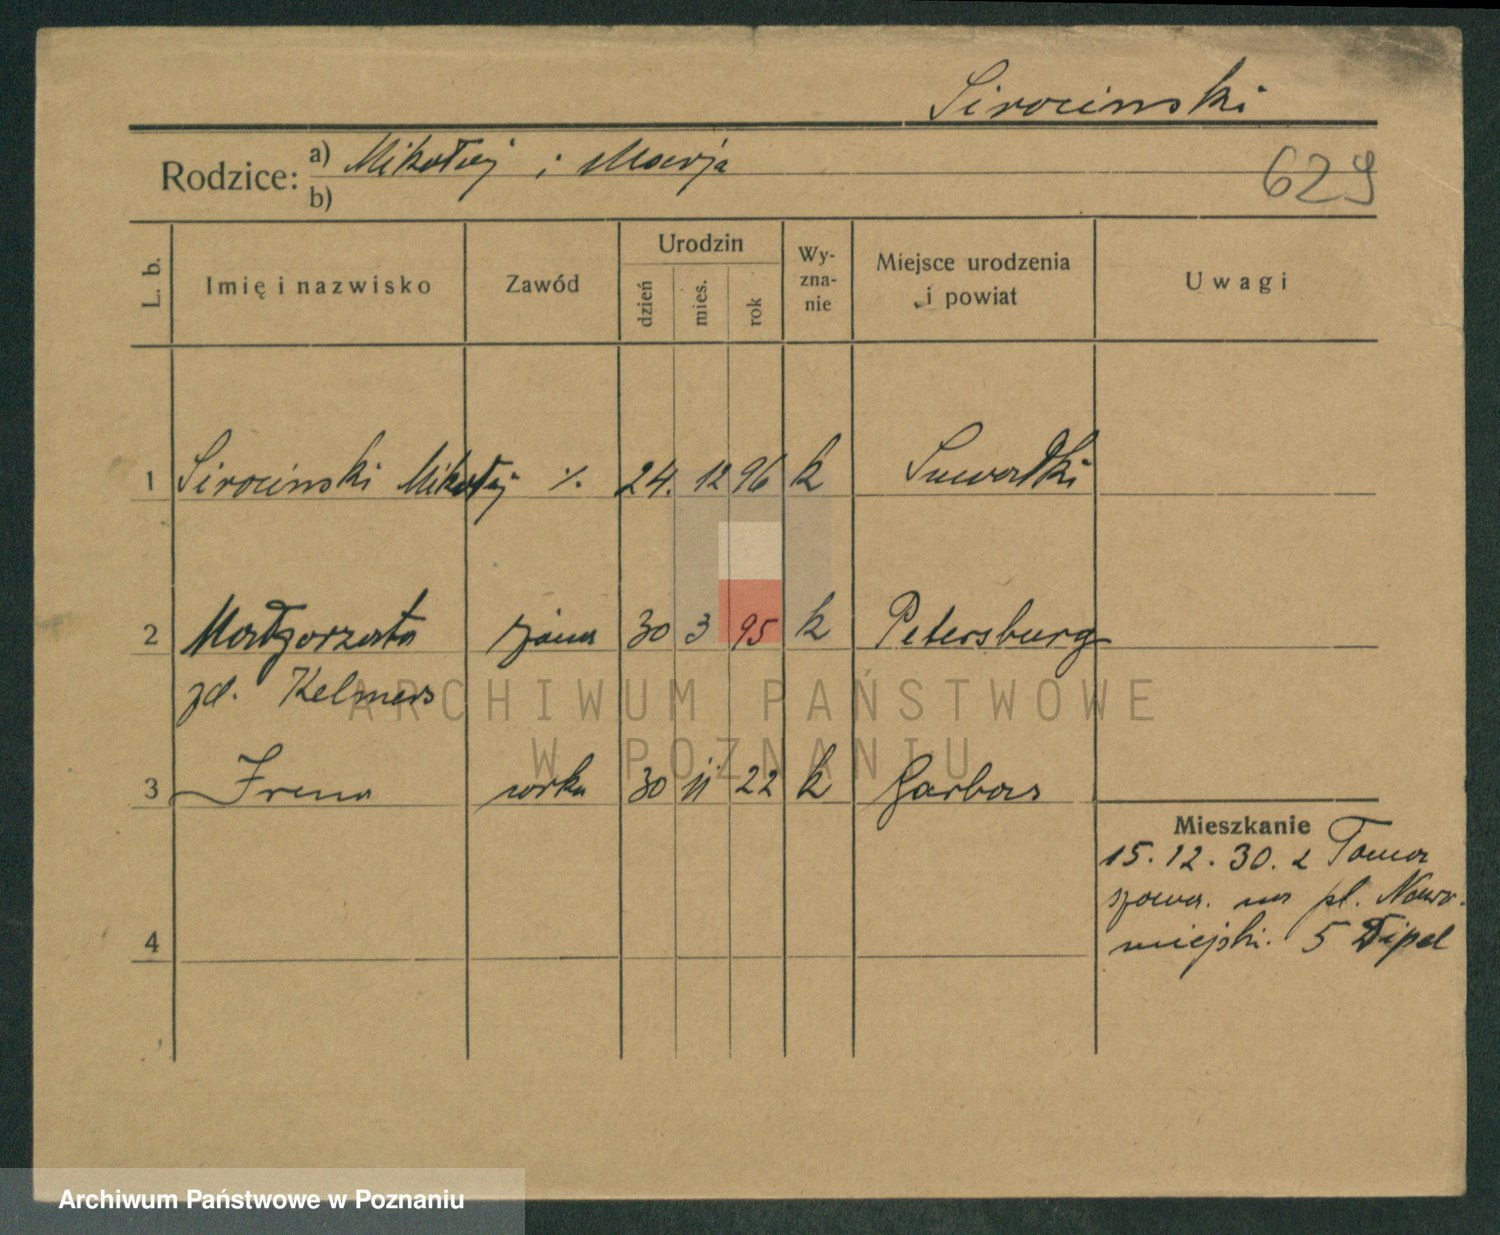 Sirocinski
Rodzice: a) Mikołaj i Marja
b)
629
L. b. Imię i nazwisko Zawód Urodzin dzień mies. rok Wy-zna-nie Miejsce urodzenia i powiat Uwagi
1 Sirocinski Mikołaj 24. 12 96 k Suwałki
2 Małgorzata żona 30 3 95 k Petersburg
zd. Kelmers
3 Irena corka 30 11 22 k Garbas
Mieszkanie
15. 12. 30. z Toma
szowa. na pl. Nowo.
miejski. 5
4
ARCHIWUM PAŃSTWOWE
W POZNANIU
Archiwum Państwowe w Poznaniu